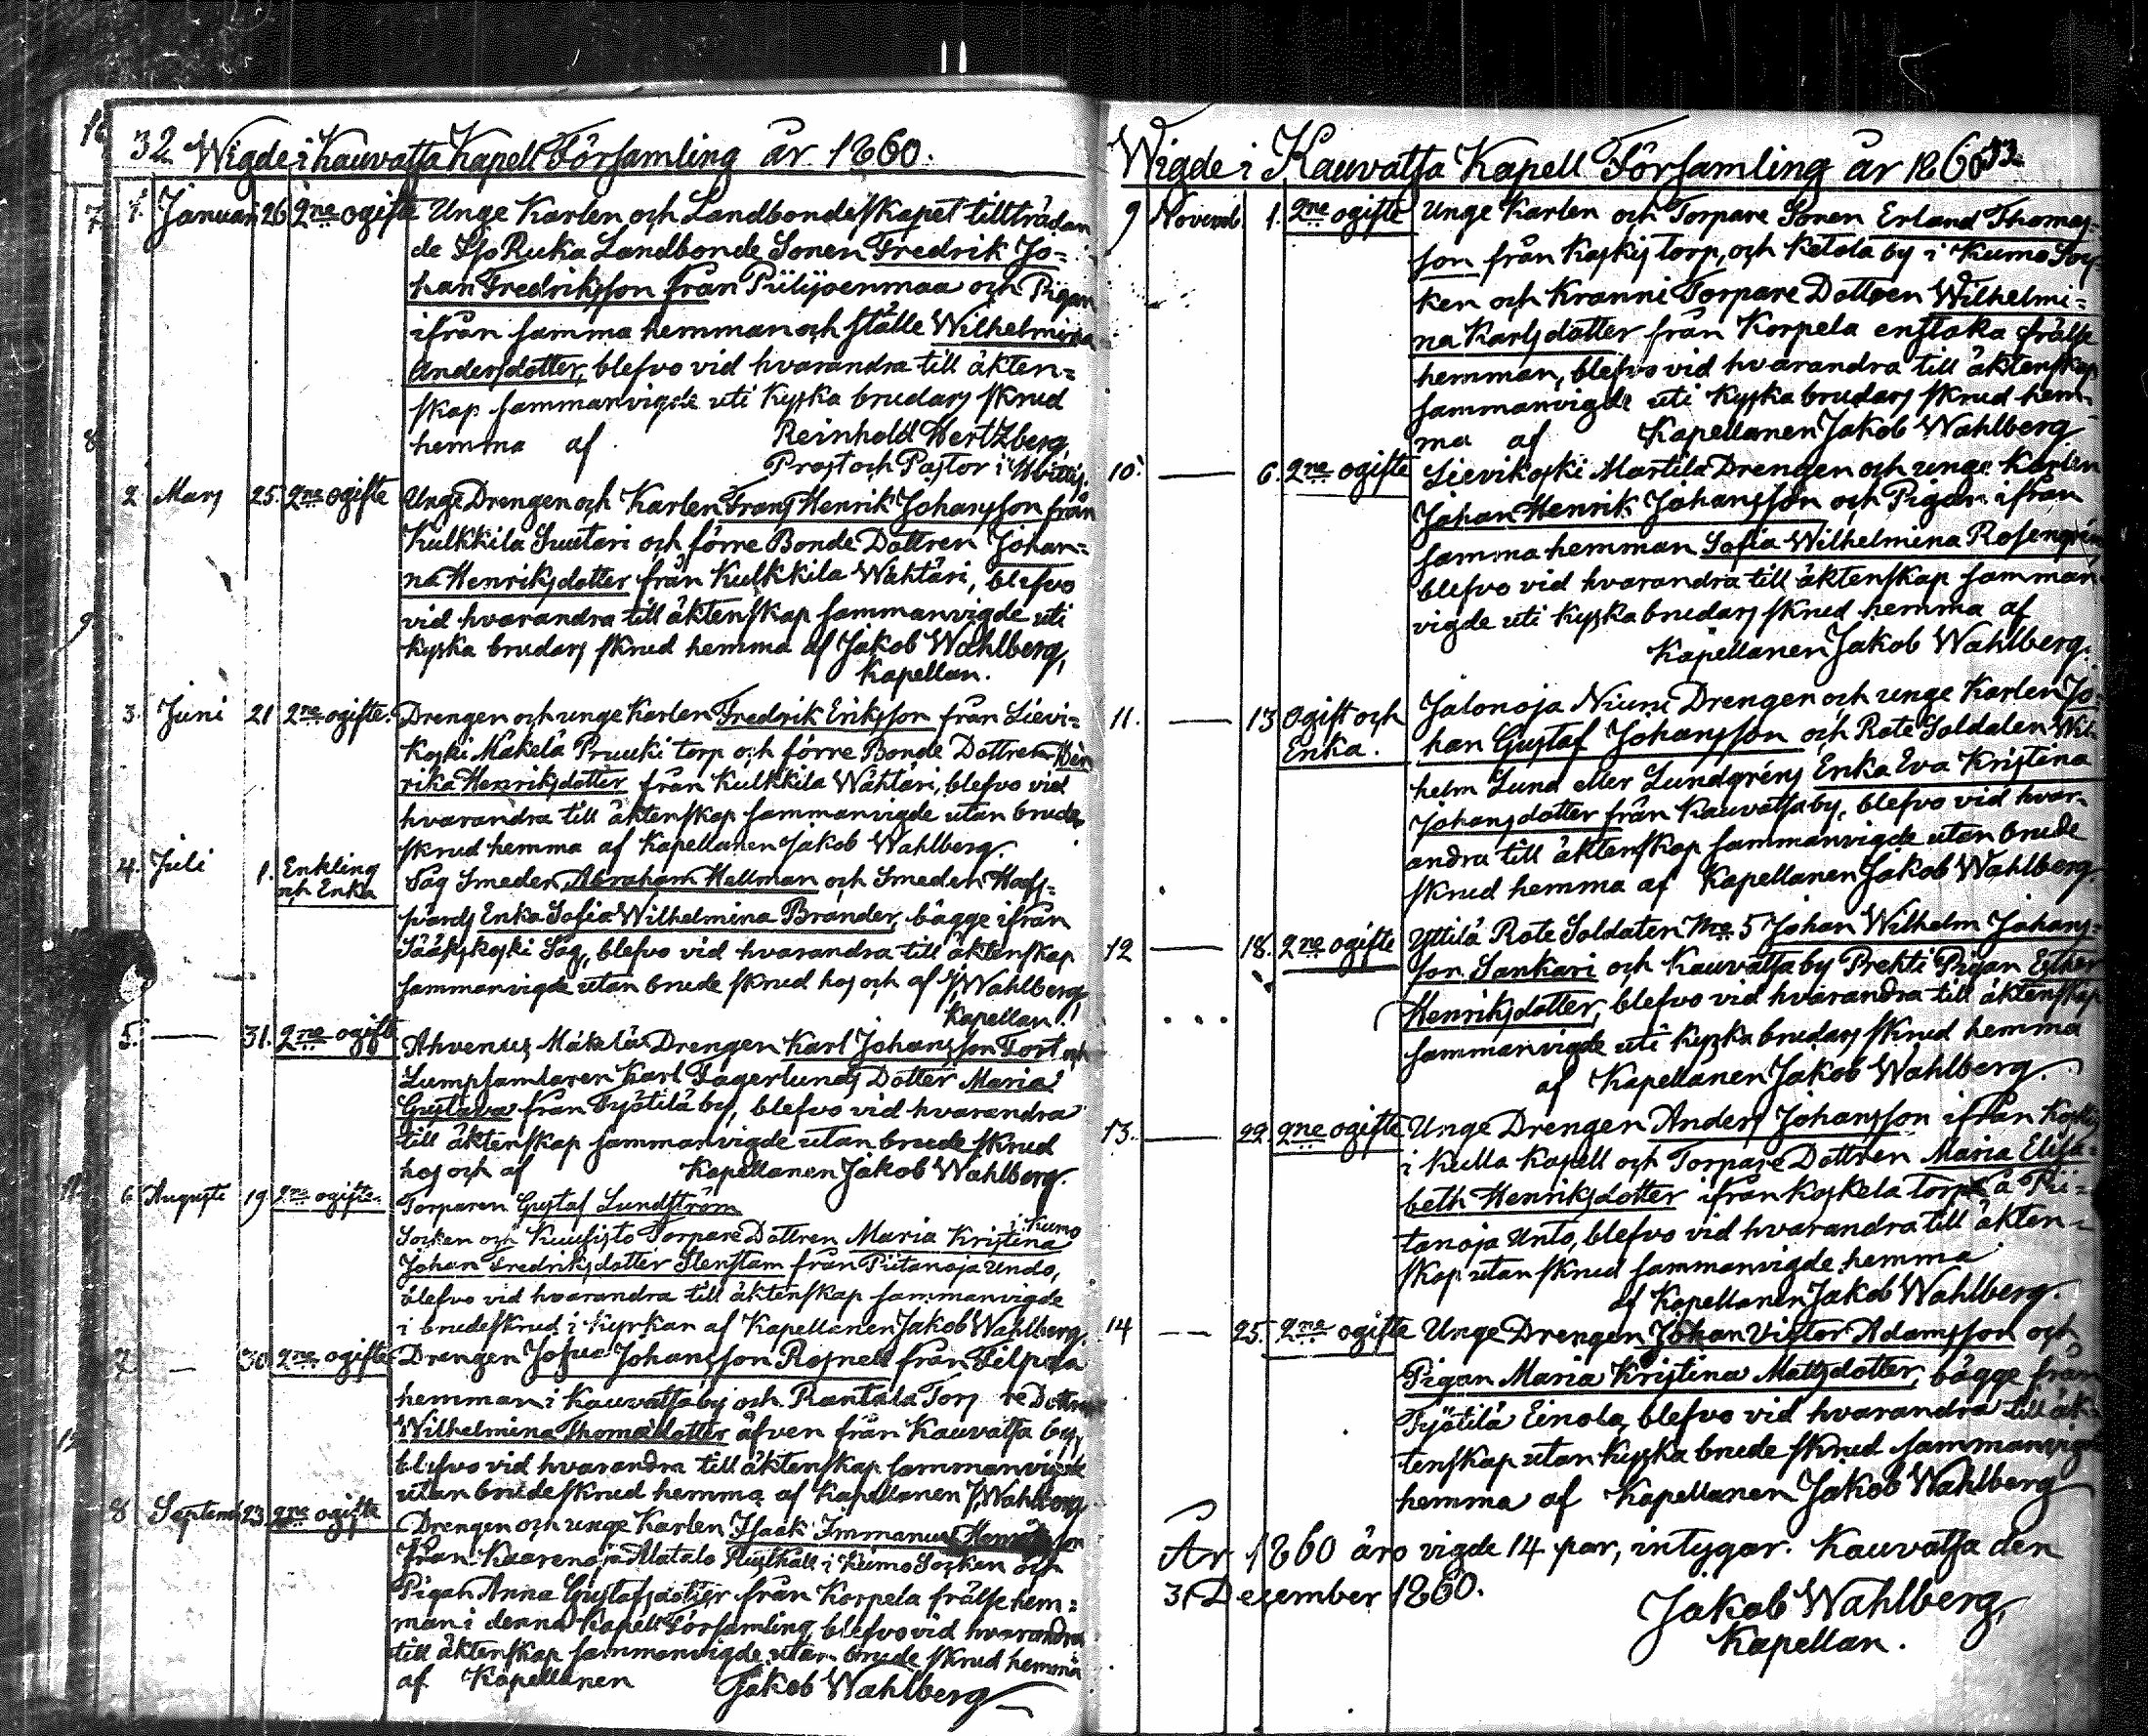 32 Wigde i Kauvatsa Kapell Församling år 1860.
1. Januari 26 2ne ogifte Unge Karlen och Landbondeskapet tillträdan
de Sjo Ruka Landbonde Sonen Fredrik Jo=
han Fredriksson från Piilijoenmaa och Pigan
ifrån samma hemman och ställe Wilhelmina
Andersdotter, blefvo vid hvarandra till äkten=
skap sammanvigde uti kyska brudars skrud
hemma af Reinhold Hertzberg,
Prost och Pastor i
2 Mars 25. 2ne ogifte Unge Drengen och Karlen Frans Henrik Johansson från
Kulkkila Suutari och förre Bonde Dottren Johan=
na Henriksdotter från Kulkkila Wähtäri, blefvo
vid hvarandra till äktenskap sammanvigde uti
kyska brudars skrud hemma af Jakob Wahlberg,
Kapellan.
3. Juni 21 2ne ogifte. Drengen och unge Karlen Fredrik Eriksson från Lievi=
koski Mäkelä Pruuki torp och förre Bonde Dottren Hen
rika Henriksdotter från Kulkkila Wähtäri, blefvo vid
hvarandra till äktenskap sammanvigde utan brude
skrud hemma af Kapellanen Jakob Wahlberg.
4. Juli 1. Enkling och Enka Såg Smeden Abraham Hellman och Smeden
Enka Sofia Wilhelmina Brander, bägge ifrån
Sääkskoski Såg, blefvo vid hvarandra till äktenskap
sammanvigde utan brude skrud hos och af J, Wahlberg,
Kapellan.
5. — 31. 2ne ogifte Ahvenus Mäkelä Drengen Karl Johansson Fort och
Lumpsamlaren Karl Fagerlunds Dotter Maria
Gustava från Työtilä by, blefvo vid hvarandra
till äktenskap sammanvigde utan brude skrud
hos och af Kapellanen Jakob Wahlberg.
6 Augusti 19 2ne ogifte. Torparen Gustaf Lundström
i Kumo
Socken och Kuusisto Torpare Dottren Maria Kristina
Johan Fredriksdotter Stenstam från Piitanoja Undo,
blefvo vid hvarandra till äktenskap sammanvigde
i brudeskrud i Kyrkan af Kapellanen Jakob Wahlberg.
7 — 30 2ne ogifte Drengen Josua Johansson Rosnell från
hemman i Kauvatsa by och Rantala
Wilhelmina Thomasdotter äfven från Kauvatsa by,
blefvo vid hvarandra till äktenskap sammanvigde
utan brudeskrud hemma af Kapellanen J, Wahlberg
8 Septemb 23 2ne ogifte Drengen och unge Karlen Isaak Immanuel
från Kaarenoja Alatalo i Kumo Socken och
Pigan Anna Gustafsdotter från Korpela frälse hem=
man i denna Kapell Församling, blefvo vid hvarandra
till äktenskap sammanvigde utan brude skrud hemma
af Kapellanen Jakob Wahlberg
Wigde i Kauvatsa Kapell Församling år 1860 33.
9 Novemb. 1. 2ne ogifte Unge Karlen och Torpare Sonen Erland Thomas=
son från Koskis torp, och Ketola by i Kumo Soc=
ken och Kranni Torpare Dottren Wilhelmi=
na Karlsdotter från Korpela enstaka frälse
hemman, blefvo vid hvarandra till äktenskap
sammanvigde uti kyska brudars skrud hem=
ma af Kapellanen Jakob Wahlberg
10. — 6. 2ne ogifte Lievikoski Martila Drengen och unge Karlen
Johan Henrik Johansson och Pigan ifrån
samma hemman Sofia Wilhelmina Rosengrén
blefvo vid hvarandra till äktenskap samman
vigde uti kyska brudars skrud hemma af
Kapellanen Jakob Wahlberg.
11. — 13 Ogift och Enka. Jalonoja Niuni Drengen och unge Karlen Jo=
han Gustaf Johansson och Rote Soldaten Wil
helm Lund eller Lundgréns Enka Eva Kristina
Johansdotter från Kauvatsa by, blefvo vid hvar=
andra till äktenskap sammanvigde utan brude
skrud hemma af Kapellanen Jakob Wahlberg.
12 — 18. 2ne ogifte Yttilä Rote Soldaten No 5 Johan Wilhelm Johans=
son Sankari och Kauvatsa by Prekti Pigan Esther
Henriksdotter, blefvo vid hvarandra till äktenskap
sammanvigde uti kyska brudars skrud hemma
af Kapellanen Jakob Wahlberg.
13. — 22. 2ne ogifte Unge Drengen Anders Johansson ifrån
i Kulla Kapell och Torpare Dottren Maria Elisa=
beth Henriksdotter ifrån Koskela torp å Pii=
tanoja Unto, blefvo vid hvarandra till äkten=
skap utan skrud sammanvigde hemma
af Kapellanen Jakob Wahlberg.
14 — 25. 2ne ogifte Unge Drengen Johan Victor Adamsson och
Pigan Maria Kristina Mattsdotter, bägge från
Työtilä Einola, blefvo vid hvarandra till äk=
tenskap utan kyska brude skrud sammanvigde
hemma af Kapellanen Jakob Wahlberg
År 1860 äro vigde 14 par, intygar. Kauvatsa den
31 December 1860.
Jakob Wahlberg,
Kapellan.